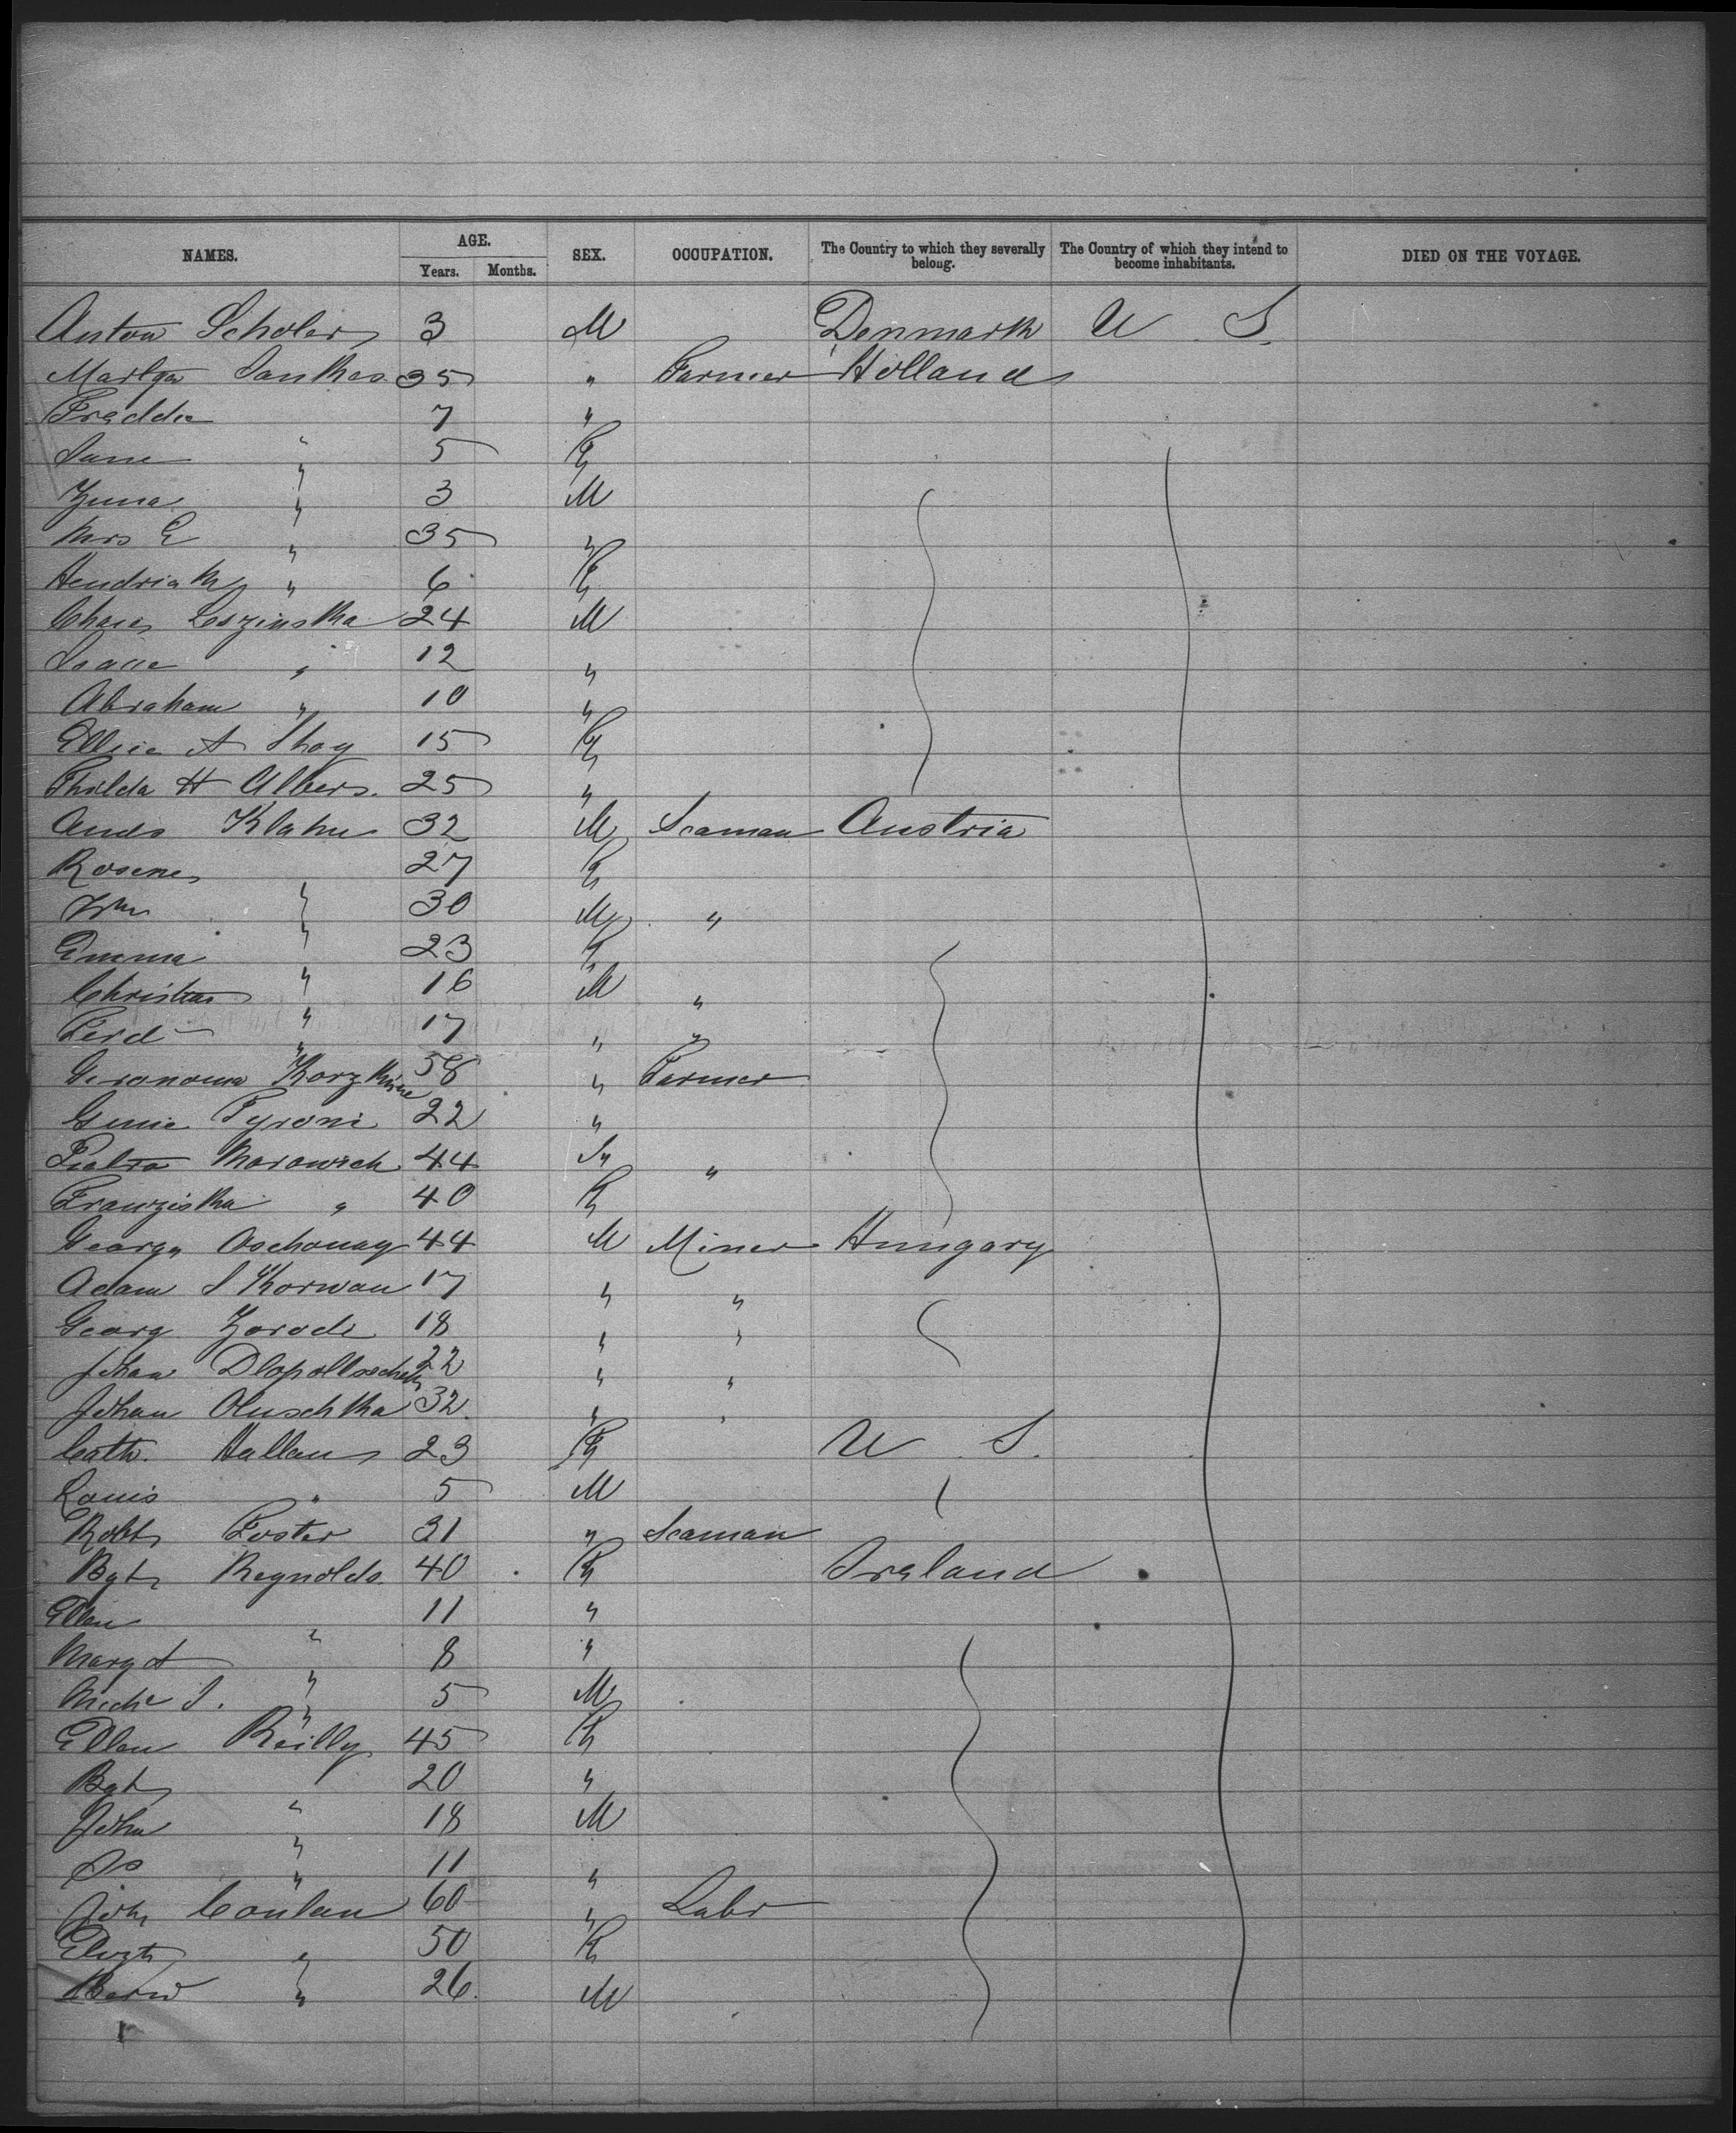 NAMES. AGE. SEX. OCCUPATION. The Country to which they severally belong. The Country of which they intend to become inhabitants. DIED ON THE VOYAGE.
Years. Months.
Anton Scholer 3 M Denmark U S.
35 " Farmer Holland
Fredder 7 "
5 F "
3 M "
Mrs E " 35 "
Hendriak " 6 F
Chas Leszinska 24 M
Isaac " 12 "
Abraham " 10 "
A Shoy 15 F
H Albers. 25 "
Ands Klahn 32 M Seaman Austria
Rosene " 27 F
Wm " 30 M "
Emma " 23 F
Christian " 16 M "
Ferd " 17 " "
58 " Farmer
Pyroni 22 "
44 "
Franziska " 40 F
Georg Oschonay 44 M Miner Hungary
Adam Skorwan 17 " "
Georg Zorode 18 " "
Johan 22 " "
Johan Oluschka 32 " "
Cath. Hallan 23 F U S.
Louis " 5 M
Robt Foster 31 " Seaman
Bgt Reynolds 40 F Ireland
Ellen " 11 "
Margt " 8 "
Michl J. " 5 M
Ellen Reilly 45 F
Bgt " 20 "
John " 18 M
Js " 11 "
John Conlan 60 " Labr
Elizth " 50 F
Bernd " 26 M